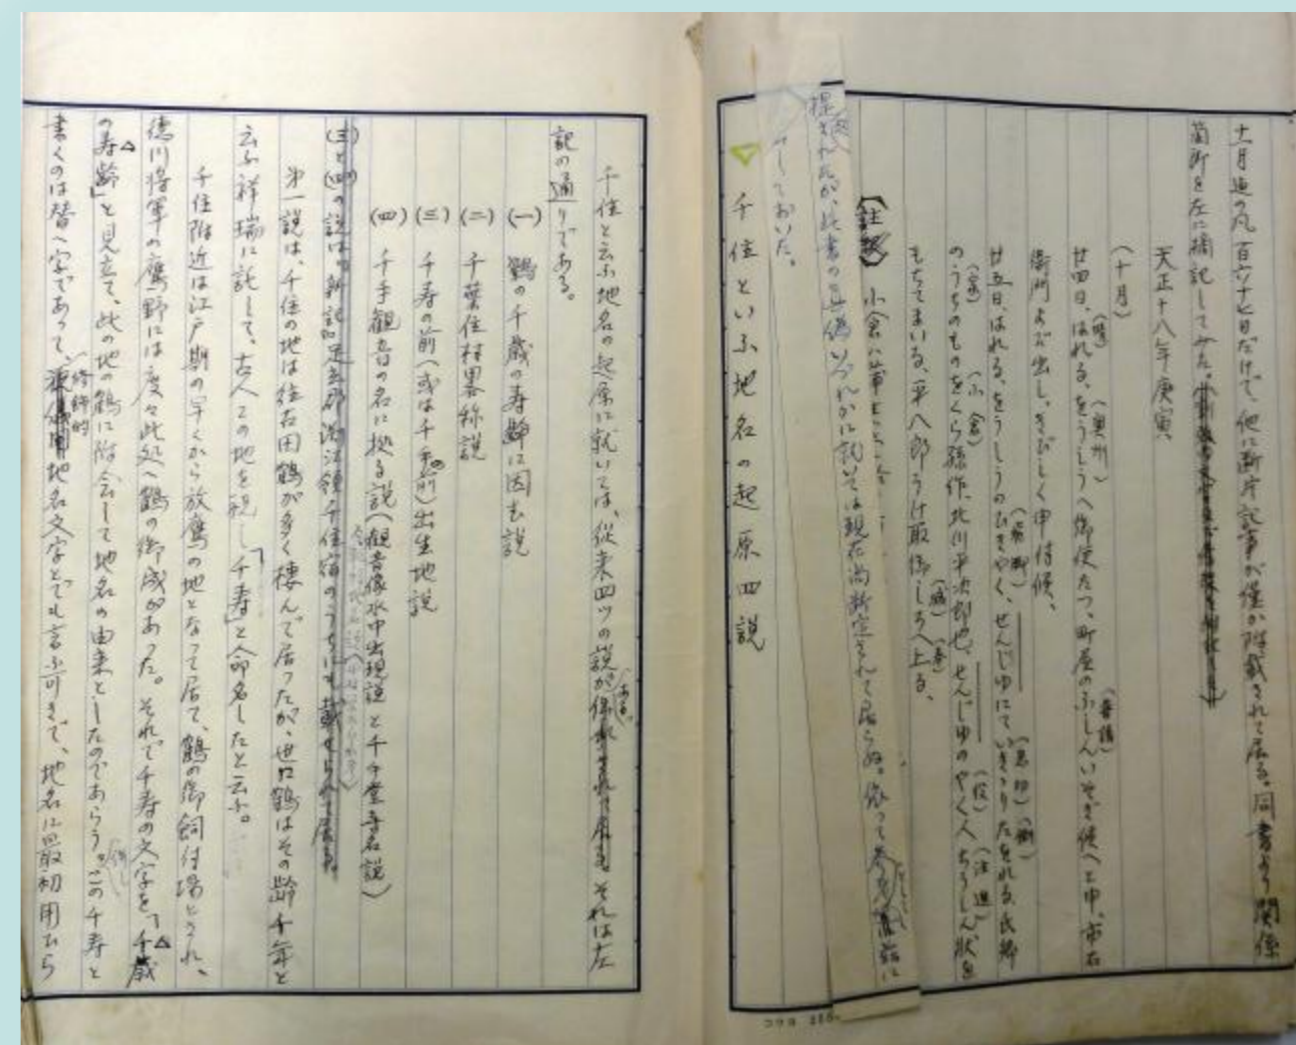 十一月迄の凡百六十七日だけで、他に断片記事が僅か附載されて居る。同書より関係
箇所を左に摘記してみた。
天正十八年庚寅
(十月)
廿四日、はれる、をうしうへ御使たつ、町屋のふしんいそぎ候へと申、市右
(晴)(奥州)(普請)
衛門よび出し、きびしく申付候、
廿五日、はれる、をうしうのひきやく、せんじゆにて、いきゝりたをれる、氏郷
(飛脚)(息切)(倒)
のうちのものをくら孫作、北川平次郎也、せんじゆのやく人ちうしん状を
(家)(小倉)(役)(注進)
もちてまいる、平八郎うけ取、御しろへ上る、
(城)
【註釈】小倉ハ蒲生
提示されたが、此書の真偽いづれかに就いては現在尚断定されて居らぬ。依って参考
しておいた。
千住といふ地名の起原四説
千住と云ふ地名の起原に就いては、従来四ツの説がある。それは左
記の通りである。
(一) 鶴の千歳の寿齢に因む説
(二) 千葉住村畧称説
(三) 千寿の前(或は千手の前)出生地説
(四) 千手観音の名に拠る説(観音像水中出現説と千手堂寺名説)
(三)と(四)の説は、新記足立郡渕江領千住宿のうちにも載せられて居る。
第一説は、千住の地は往古田鶴が多く棲んで居ったが、世に鶴はその齢千年と
云ふ祥瑞に託して、古人この地を祝し「千寿」と命名したと云ふ。
千住附近は江戸期の早くから放鷹の地となって居て、鶴の御飼付場とされ、
徳川将軍の鷹野には度々此処へ鶴の御成があった。それで千寿の文字を「千歳
の寿齢」と見立て、此の地の鶴に附会して地名の由来としたのであらう。この千寿と
書くのは替へ字であって、修飾的地名文字とでも言ふ可きで、地名に最初用ひら
コクヨ